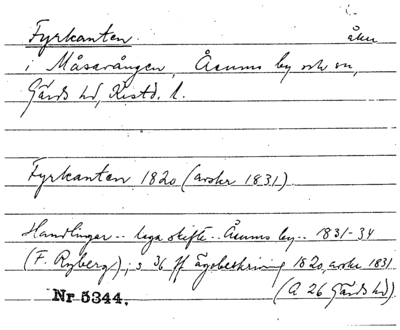 Fyrkanten åker
i Måsavången, Åsums by och sn,
Gärds hd, Kristd. l.
Fyrkanten 1820 (avskr 1831)
Handlingar .. laga skifte .. Åsums by .. 1831-34
(F. Ryberg); s 36 ff Ägobeskrivning 1820, avskr. 1831
(A 26 Gärds hd)
Nr 5344.